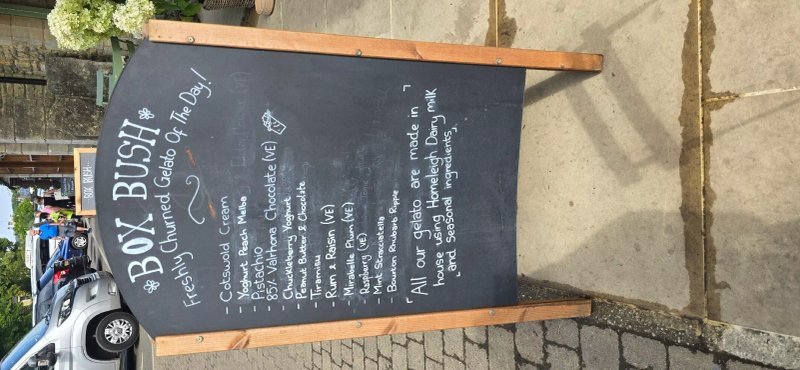 BOX BUSH
Freshly Churned Gelato Of The Day!
- Cotswold Cream
- Yoghurt Peach Melba
- Pistachio
- 85% Valrhona Chocolate (VE)
- Chuckleberry Yoghurt
- Peanut Butter & Chocolate
- Tiramisu
- Rum & Raisin (VE)
- Mirabelle Plum (VE)
- Raspberry (VE)
- Mint Stracciatella
- Bourton Rhubarb Ripple
All our gelato are made in
house using Homeleigh Dairy milk
and seasonal ingredients.
BOX BUSH